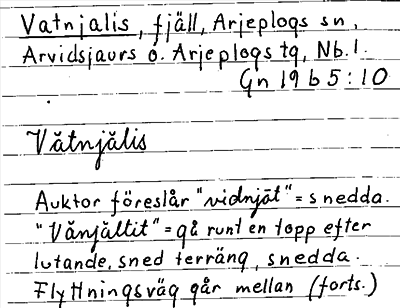 Vatnjalis, fjäll, Arjeplogs sn,
Arvidsjaurs o. Arjeplogs tg, Nb. l.
Gn 19 b 5:10
Vătnjălis
Auktor föreslår "vidnjāt" = snedda.
"Vănjăltit" = gå runt en topp efter
lutande, sned terräng, snedda.
Flyttningsväg går mellan (forts.)